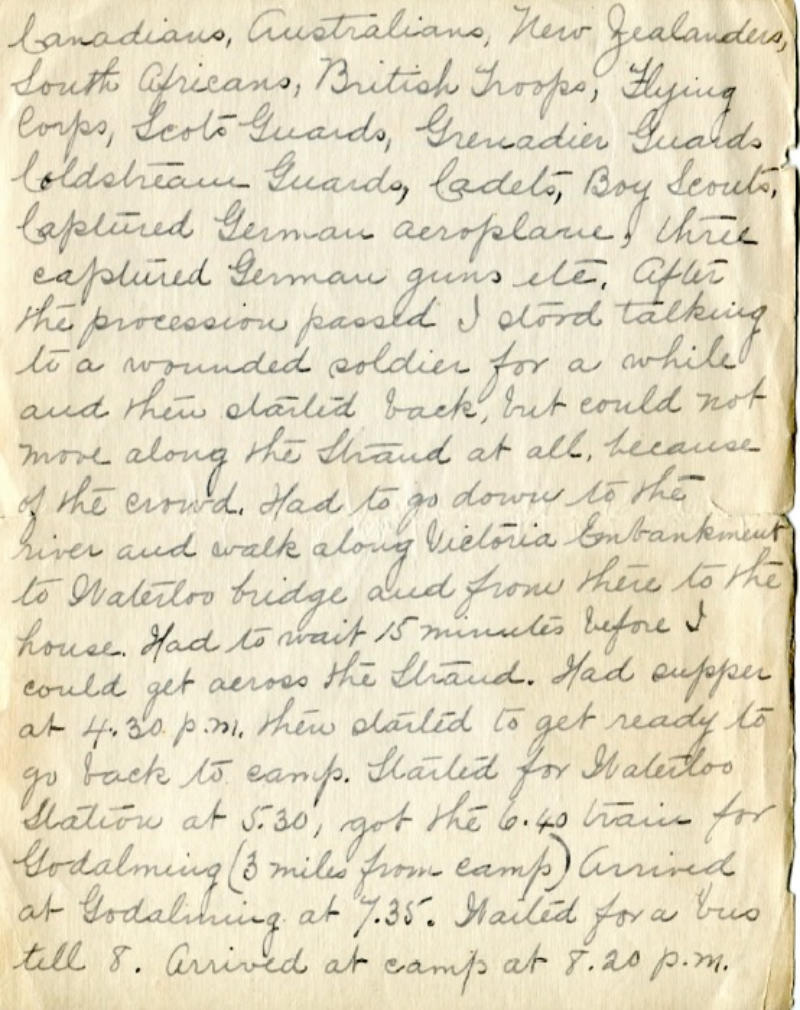 Canadians, Australians, New Zealanders,
South Africans, British Troops, Flying
Corps, Scots Guards, Grenadier Guards
Coldstream Guards, Cadets, Boy Scouts,
Captured German aeroplane, three
captured German guns etc. After
the procession passed I stood talking
to a wounded soldier for a while
and then started back, but could not
move along the Strand at all, because
of the crowd. Had to go down to the
river and walk along Victoria Embankment
to Waterloo bridge and from there to the
house. Had to wait 15 minutes before I
could get across the Strand. Had supper
at 4.30 p.m. then started to get ready to
go back to camp. Started for Waterloo
Station at 5.30, got the 6.40 train for
Godalming (3 miles from camp) Arrived
at Godalming at 7.35. Waited for a bus
till 8. Arrived at camp at 8.20 p.m.